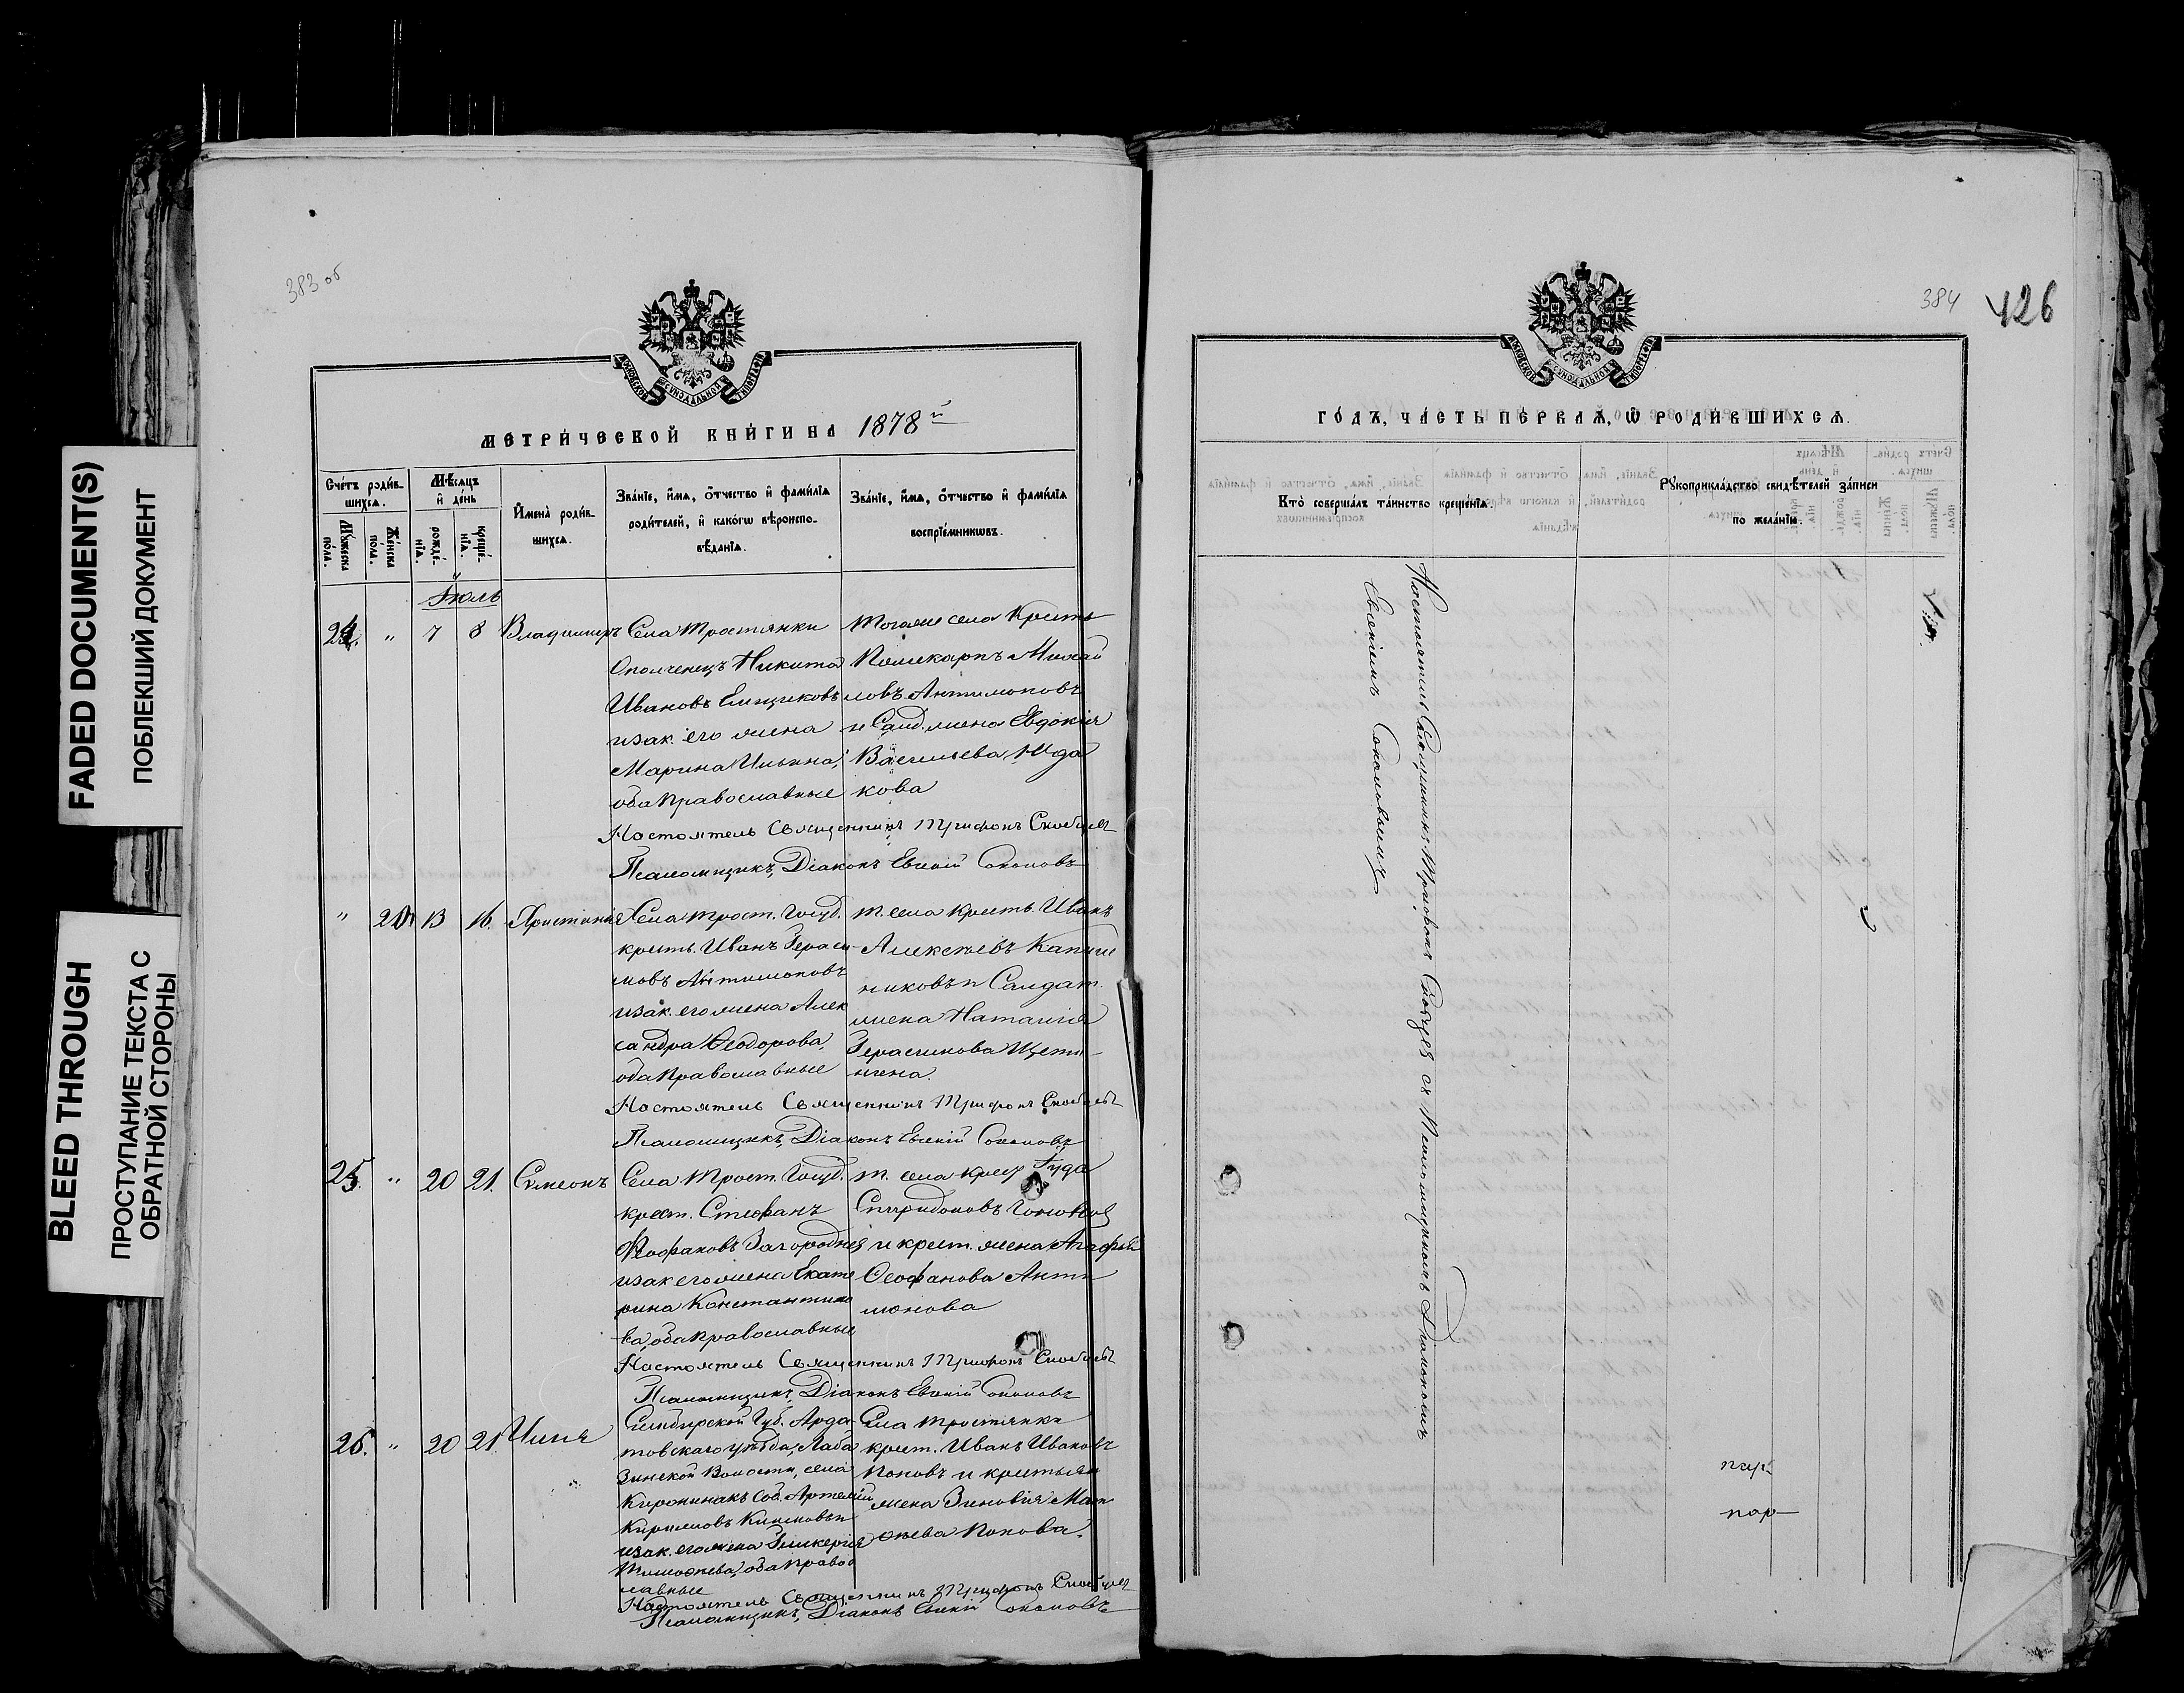 FADED DOCUMENT(S)
ПОБЛЕКШИЙ ДОКУМЕНТ
BLEED THROUGH
ПРОСТУПАНИЕ ТЕКСТА С
ОБРАТНОЙ СТОРОНЫ
383 об
МЕТРИ́ЧЕСКОЙ КНИ́ГИ НА 1878й
Сче́тъ роди́в-
шихсѧ.
Мꙋ́жеска по́ла.
Же́нска по́ла.
Мѣ́сѧцъ
и҆ де́нь
рожде́-
нїѧ.
креще́-
нїѧ.
И҆мена̀ роди́в-
шихсѧ.
Зва́нїе, и҆́мѧ, ѻ҆́тчество и҆ фами́лїѧ
роди́телей, и҆ како́гѡ вѣроиспо-
вѣ́данїѧ.
Зва́нїе, и҆́мѧ, ѻ҆́тчество и҆ фами́лїѧ
воспрїе́мникѡвъ.
Іюль
24. " 7 8 Владимиръ
Села Тростянки
Ополченецъ Никита
Ивановъ Ямщиковъ
и зак. его жена
Марина Ильина,
оба православные
Тогоже села Кресть
Поликарпъ Михай
ловъ Антимоновъ
и Солд. жена Евдокія
Васильева Юда
кова
Настоятель Священникъ Трифонъ
Псаломщикъ, Діаконъ Евсепій Соколовъ
" 20 13 16. Христина
Села Трост. Госуд.
кресть. Иванъ Гераси-
мовъ Антимоновъ
и зак. его жена Алек
сандра Ѳеодорова,
оба православные
Т. села кресть. Иванъ
Алексѣевъ
никовъ и Салдат.
жена Наталія
Герасимова Щети-
нина.
Настоятель Священникъ Трифонъ
Псаломщикъ, Діаконъ Евсепій Соколовъ
25. " 20 21. Сѵмеонъ
Села Трост. Госуд.
крест. Стефанъ
Ѳеофановъ Загородней
и зак его жена Екате
рина Константино
ва, оба православные
Т. села крест Іуда
Спиридоновъ
и крест. жена Агафья
Ѳеофанова Анти
монова
Настоятель Священникъ Трифонъ
Псаломщикъ, Діаконъ Евсепій Соколовъ
26. " 20 21. Илія
Симбирской Губ. Арда
товскаго уѣзда,
Волости, села
Соб. Артемій
Кириловъ Климовъ и
и зак. его жена Гликерія
Тимоѳеева, оба право
славные
Села Тростянки
крест. Иванъ Ивановъ
Поповъ и крестьян
жена Зиновія Мат
ѳѣева Попова.
Настоятель Священникъ Трифонъ
Псаломщикъ, Діаконъ Евсепій Соколовъ
384
426
ГО́ДЪ, ЧА́СТЬ ПЕ́РВАѦ, Ѡ҆ РОДИ́ВШИХСѦ.
Кто̀ соверша́лъ та́инство креще́нїѧ.
Рꙋкоприкла́дство свидѣ́телей за́писи
по жела́нїю.
Настоятель Священникъ Трифонъ съ Псаломщикомъ Діакономъ
Евсепіемъ Соколовымъ